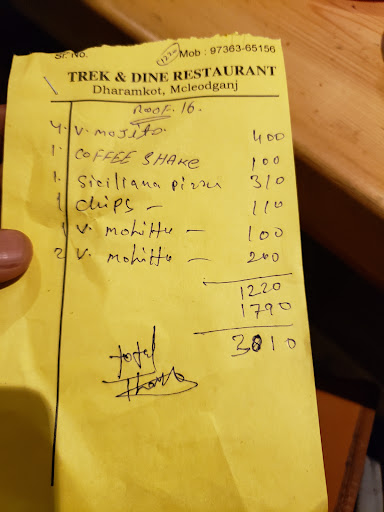 Sr. No. 1220 Mob : 97363-65156
TREK & DINE RESTAURANT
Dharamkot, Mcleodganj
ROOF. 16.
4. V. mojito 400
1. COFFEE SHAKE 100
1. Siciliana pizza 310
1 chips - 110
1 V. mohitto - 100
2 V. mohitto - 200
1220
1790
3010
total